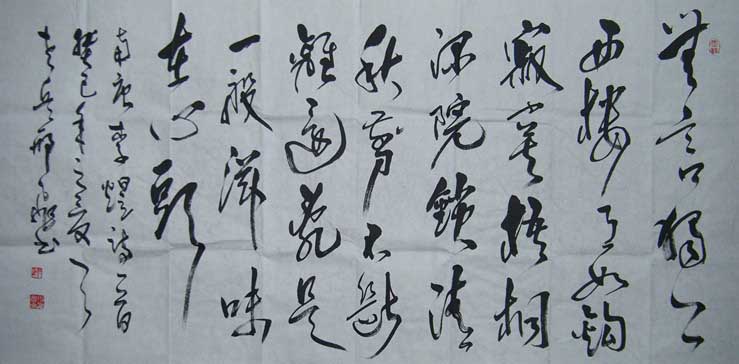 無言獨上
西樓月如鈎
寂寞梧桐
深院鎖清
秋剪不斷
離還亂是
一般滋味
在心頭
南唐李煜詩一首
癸巳年之夏
老兵邢書